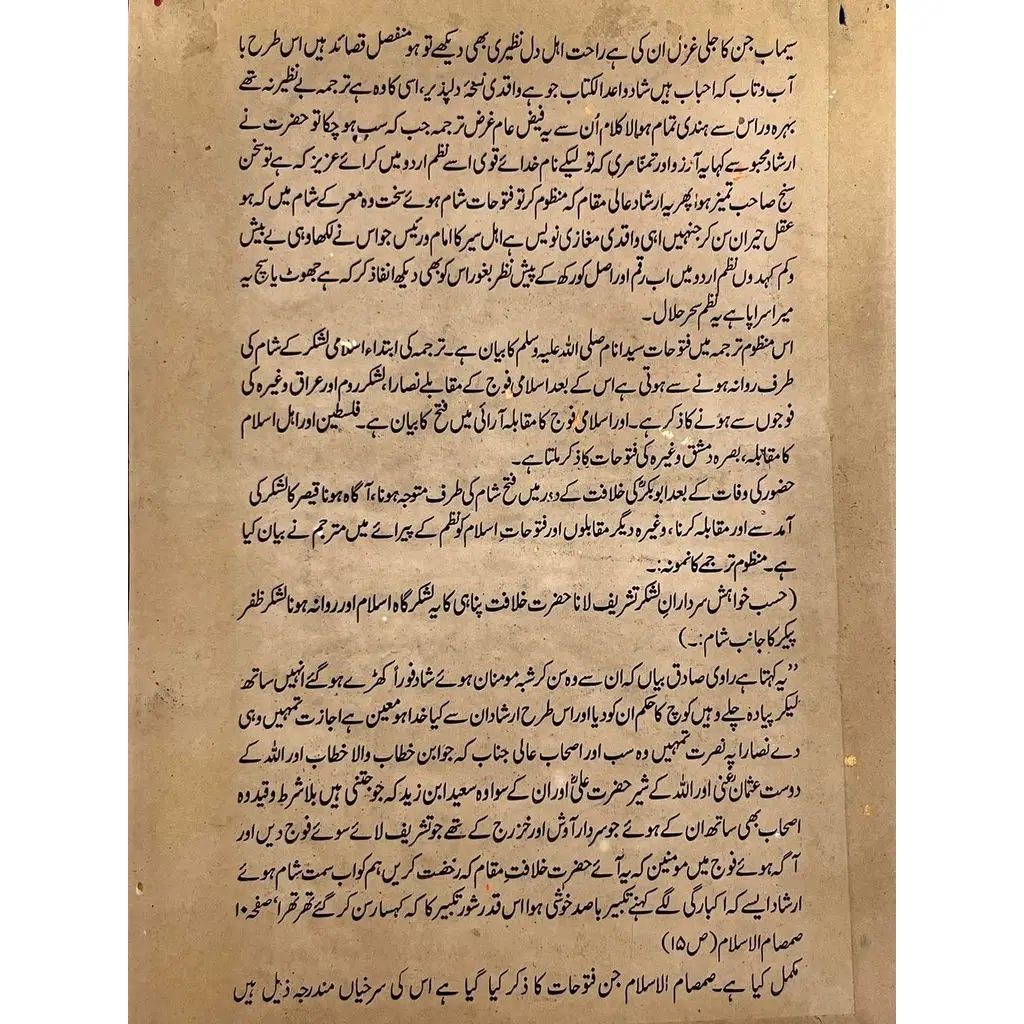 سیماب جن کا جلی غزل ان کی ہے راحت اہل دل نظیری بھی دیکھے تو ہو منفصل قصائد ہیں اس طرح با
آب و تاب کہ احباب ہیں شاد واعدا لکتاب جو ہے واقدی نسخۂ دلپذیر، اسی کا وہ ہے ترجمہ بے نظیر نہ تھے
بہرہ ور اس سے ہندی تمام ہوا لا کلام اُن سے یہ فیض عام غرض ترجمہ جب کہ سب ہو چکا تو حضرت نے
ارشاد مجبو سے کہا یہ آرزو اور تمنا مری کہ تو لیکے نام خدائے قوی اسے نظم اردو میں کرائے عزیز کہ ہے تو سخن
سنج صاحب تمیز ہوا پھر یہ ارشاد عالی مقام کہ منظوم کر تو فتوحات شام ہوئے سخت وہ معرکے شام میں کہ ہو
عقل حیران سن کر جنہیں اہی واقدی مغازی نویس ہے اہل سیر کا امام ورئیس جو اس نے لکھا وہی بے بیش
وکم کہدوں نظم اردو میں اب رقم اور اصل کو رکھ کے پیش نظر بغور اس کو بھی دیکھ انفاذ کر کہ ہے جھوٹ یا سچ یہ
میرا سراپا ہے یہ نظم سحر حلال۔
اس منظوم ترجمہ میں فتوحات سید انام صلی اللہ علیہ وسلم کا بیان ہے۔ ترجمہ کی ابتداء اسلامی لشکر کے شام کی
طرف روانہ ہونے سے ہوتی ہے اس کے بعد اسلامی فوج کے مقابلے نصارا، لشکر روم اور عراق وغیرہ کی
فوجوں سے ہونے کا ذکر ہے۔ اور اسلامی فوج کا مقابلہ آرائی میں فتح کا بیان ہے۔ فلسطین اور اہل اسلام
کا مقابلہ، بصرہ دمشق وغیرہ کی فتوحات کا ذکر ملتا ہے۔
حضور کی وفات کے بعد ابوبکرؓ کی خلافت کے د؟ر میں فتح شام کی طرف متوجہ ہونا، آگاہ ہونا قیصر کا لشکر کی
آمد سے اور مقابلہ کرنا، وغیرہ دیگر مقابلوں اور فتوحات اسلام کو نظم کے پیرائے میں مترجم نے بیان کیا
ہے۔ منظوم ترجمے کا نمونہ:۔
(حسب خواہش سرداران لشکر تشریف لانا حضرت خلافت پناہی کا یہ لشکر گاہ اسلام اور روانہ ہونا لشکر ظفر
پیکر کا جانب شام:۔)
”یہ کہتا ہے راوی صادق بیاں کہ ان سے وہ سن کر شہ مومنان ہوئے شاد فوراً کھڑے ہو گئے انہیں ساتھ
لیکر پیادہ چلے وہیں کوچ کا حکم ان کو دیا اور اس طرح ارشاد ان سے کیا خدا ہو معین ہے اجازت تمہیں وہی
دے نصارا پہ نصرت تمہیں وہ سب اور اصحاب عالی جناب کہ جو ابن خطاب والا خطاب اور اللہ کے
دوست عثمان غنیؓ اور اللہ کے شیر حضرت علیؓ اور ان کے سوا وہ سعید ابن زید کہ جو جنتی ہیں بلا شرط و قید وہ
اصحاب بھی ساتھ ان کے ہوئے جو سردار آوش اور خزرج کے تھے جو تشریف لائے سوئے فوج دیں اور
آگہ ہوئے فوج میں مومنین کہ یہ آئے حضرت خلافت مقام کہ رخصت کریں ہم کو اب سمت شام ہوئے
ارشاد ایسے کہ اکبارگی لگے کہنے تکبیر باصد خوشی ہوا اس قدر شور تکبیر کا کہ کہسار سن کر گئے تھر تھرا‘ صفحہ ۱۰
صمصام الاسلام (ص ۱۵)
مکمل کیا ہے۔ صمصام الاسلام جن فتوحات کا ذکر کیا گیا ہے اس کی سرخیاں مندرجہ ذیل ہیں